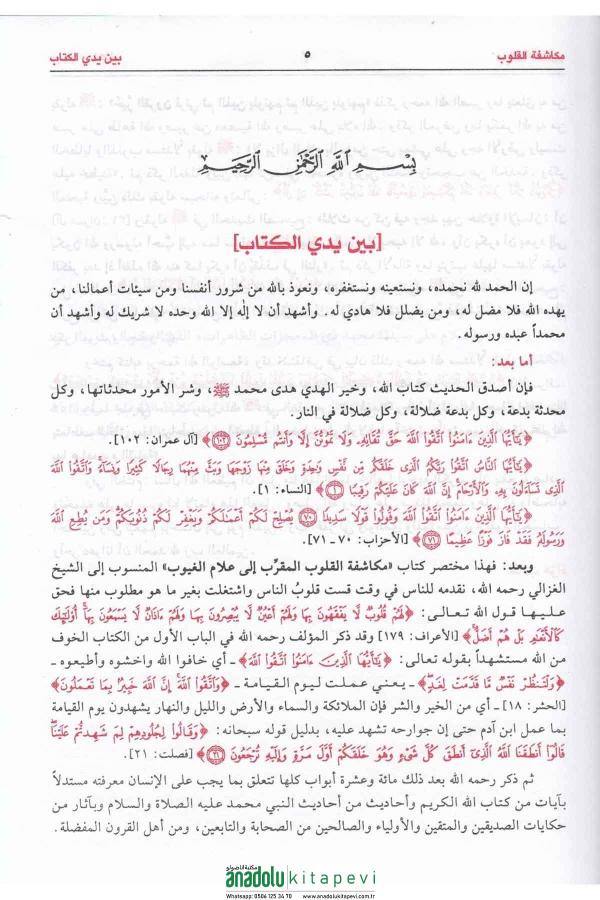 مكاشفة القلوب ٥ بين يدي الكتاب
بِسْمِ اللَّهِ الرَّحْمَنِ الرَّحِيمِ
[بين يدي الكتاب]
إن الحمد لله نحمده، ونستعينه ونستغفره، ونعوذ بالله من شرور أنفسنا ومن سيئات أعمالنا، من
يهده الله فلا مضل له، ومن يضلل فلا هادي له. وأشهد أن لا إله إلا الله وحده لا شريك له وأشهد أن
محمداً عبده ورسوله.
أما بعد:
فإن أصدق الحديث كتاب الله، وخير الهدي هدى محمد ﷺ، وشر الأمور محدثاتها، وكل
محدثة بدعة، وكل بدعة ضلالة، وكل ضلالة في النار.
﴿يَٰٓأَيُّهَا ٱلَّذِينَ ءَامَنُوا۟ ٱتَّقُوا۟ ٱللَّهَ حَقَّ تُقَاتِهِۦ وَلَا تَمُوتُنَّ إِلَّا وَأَنتُم مُّسْلِمُونَ ١٠٢﴾ [آل عمران: ١٠٢].
﴿يَٰٓأَيُّهَا ٱلنَّاسُ ٱتَّقُوا۟ رَبَّكُمُ ٱلَّذِى خَلَقَكُم مِّن نَّفْسٍ وَٰحِدَةٍ وَخَلَقَ مِنْهَا زَوْجَهَا وَبَثَّ مِنْهُمَا رِجَالًا كَثِيرًا وَنِسَآءً وَٱتَّقُوا۟ ٱللَّهَ
ٱلَّذِى تَسَآءَلُونَ بِهِۦ وَٱلْأَرْحَامَ إِنَّ ٱللَّهَ كَانَ عَلَيْكُمْ رَقِيبًا ١﴾ [النساء: ١].
﴿يَٰٓأَيُّهَا ٱلَّذِينَ ءَامَنُوا۟ ٱتَّقُوا۟ ٱللَّهَ وَقُولُوا۟ قَوْلًا سَدِيدًا ٧٠ يُصْلِحْ لَكُمْ أَعْمَٰلَكُمْ وَيَغْفِرْ لَكُمْ ذُنُوبَكُمْ وَمَن يُطِعِ ٱللَّهَ
وَرَسُولَهُۥ فَقَدْ فَازَ فَوْزًا عَظِيمًا ٧١﴾ [الأحزاب: ٧٠ - ٧١].
وبعد: فهذا مختصر كتاب «مكاشفة القلوب المقرّب إلى علام الغيوب» المنسوب إلى الشيخ
الغزالي رحمه الله، نقدمه للناس في وقت قست قلوبُ الناس واشتغلت بغير ما هو مطلوب منها فحق
عليها قول الله تعالى: ﴿لَهُمْ قُلُوبٌ لَّا يَفْقَهُونَ بِهَا وَلَهُمْ أَعْيُنٌ لَّا يُبْصِرُونَ بِهَا وَلَهُمْ ءَاذَانٌ لَّا يَسْمَعُونَ بِهَآ أُو۟لَٰٓئِكَ
كَٱلْأَنْعَٰمِ بَلْ هُمْ أَضَلُّ﴾ [الأعراف: ١٧٩] وقد ذكر المؤلف رحمه الله في الباب الأول من الكتاب الخوف
من الله مستشهداً بقوله تعالى: ﴿يَٰٓأَيُّهَا ٱلَّذِينَ ءَامَنُوا۟ ٱتَّقُوا۟ ٱللَّهَ﴾ - أي خافوا الله واخشوه وأطيعوه -
﴿وَلْتَنظُرْ نَفْسٌ مَّا قَدَّمَتْ لِغَدٍ﴾ - يعني عملت ليوم القيامة - ﴿وَٱتَّقُوا۟ ٱللَّهَ إِنَّ ٱللَّهَ خَبِيرٌۢ بِمَا تَعْمَلُونَ﴾
[الحشر: ١٨] - أي من الخير والشر فإن الملائكة والسماء والأرض والليل والنهار يشهدون يوم القيامة
بما عمل ابن آدم حتى إن جوارحه تشهد عليه، بدليل قوله سبحانه: ﴿وَقَالُوا۟ لِجُلُودِهِمْ لِمَ شَهِدتُّمْ عَلَيْنَا
قَالُوٓا۟ أَنطَقَنَا ٱللَّهُ ٱلَّذِىٓ أَنطَقَ كُلَّ شَىْءٍ وَهُوَ خَلَقَكُمْ أَوَّلَ مَرَّةٍ وَإِلَيْهِ تُرْجَعُونَ ٢١﴾ [فصلت: ٢١].
ثم ذكر رحمه الله بعد ذلك مائة وعشرة أبواب كلها تتعلق بما يجب على الإنسان معرفته مستدلاً
بآيات من كتاب الله الكريم وأحاديث من أحاديث النبي محمد عليه الصلاة والسلام وبآثار من
حكايات الصديقين والمتقين والأولياء والصالحين من الصحابة والتابعين، ومن أهل القرون المفضلة.
مكتبة اناضولو
anadolu kitapevi
Whatsapp: 0506 125 34 70 www.anadolukitapevi.com.tr